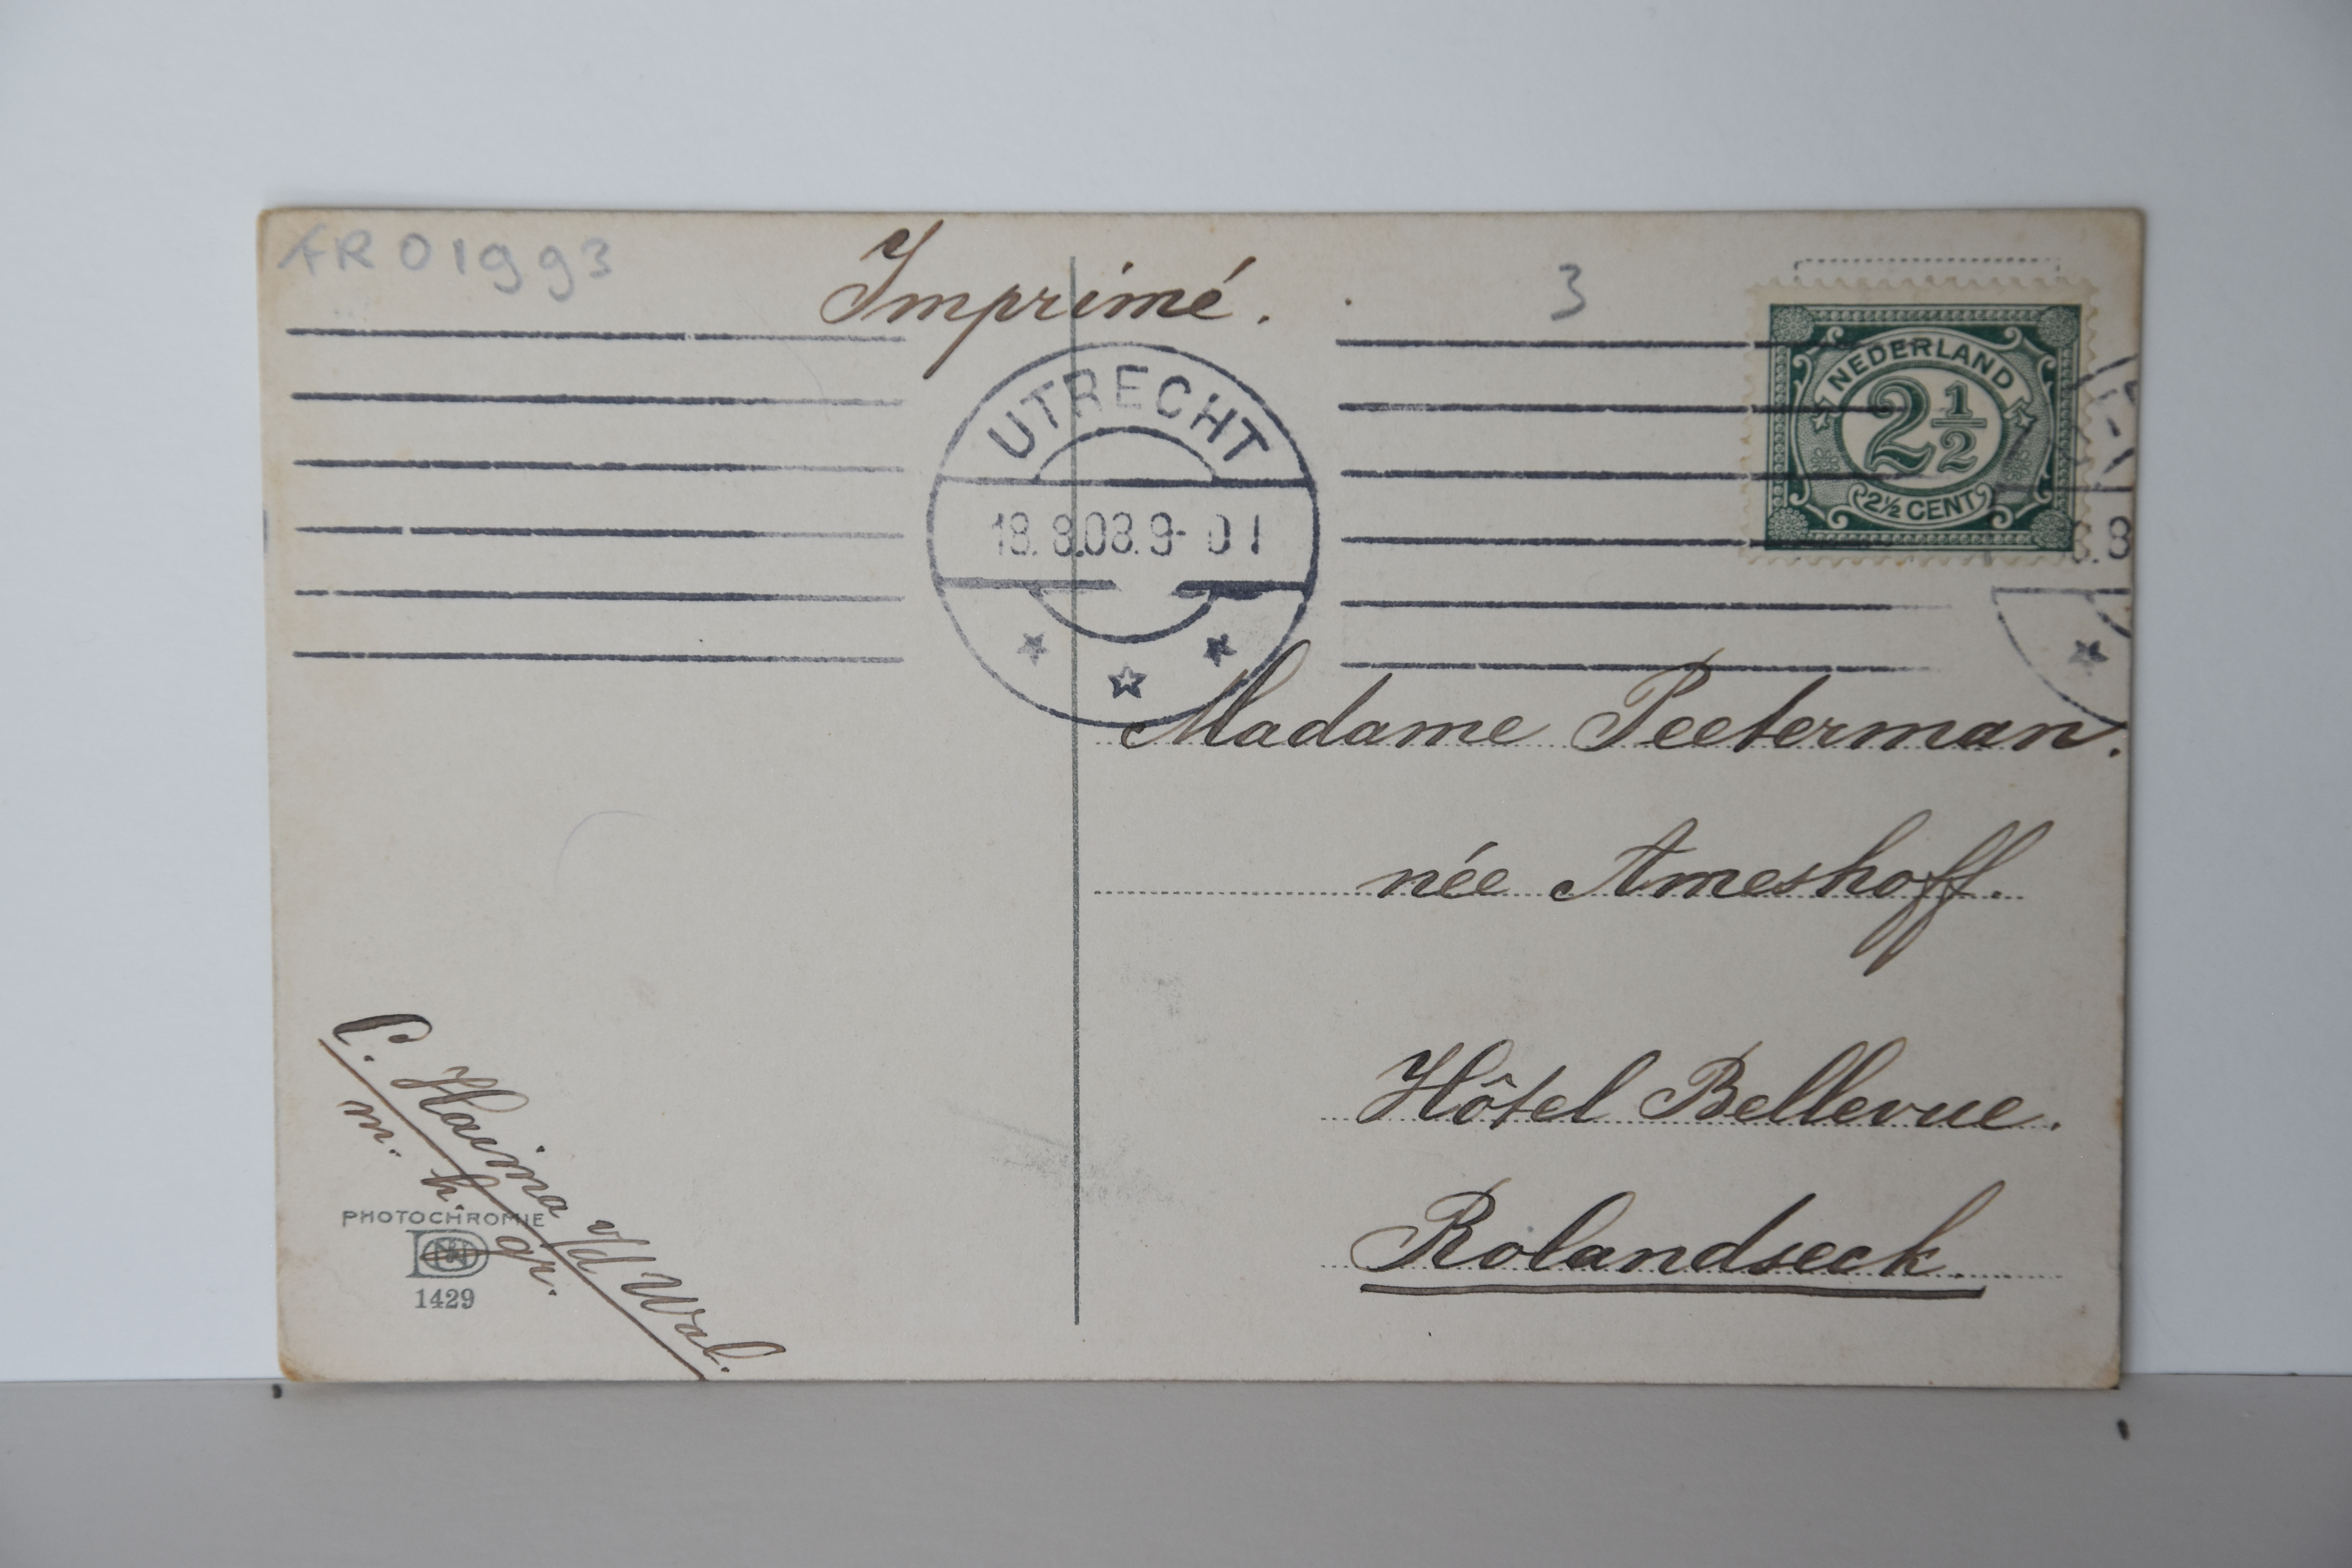 FR01993
Imprimé.
3
NEDERLAND
2 1/2
2½ CENT
UTRECHT
18.8.08.9-
8
Madame Peeterman.
née Ameshoff.
Hôtel Bellevue.
Rolandseck.
C. Hajna v/d Wal.
m. h. gr.
PHOTOCHROMIE
1429